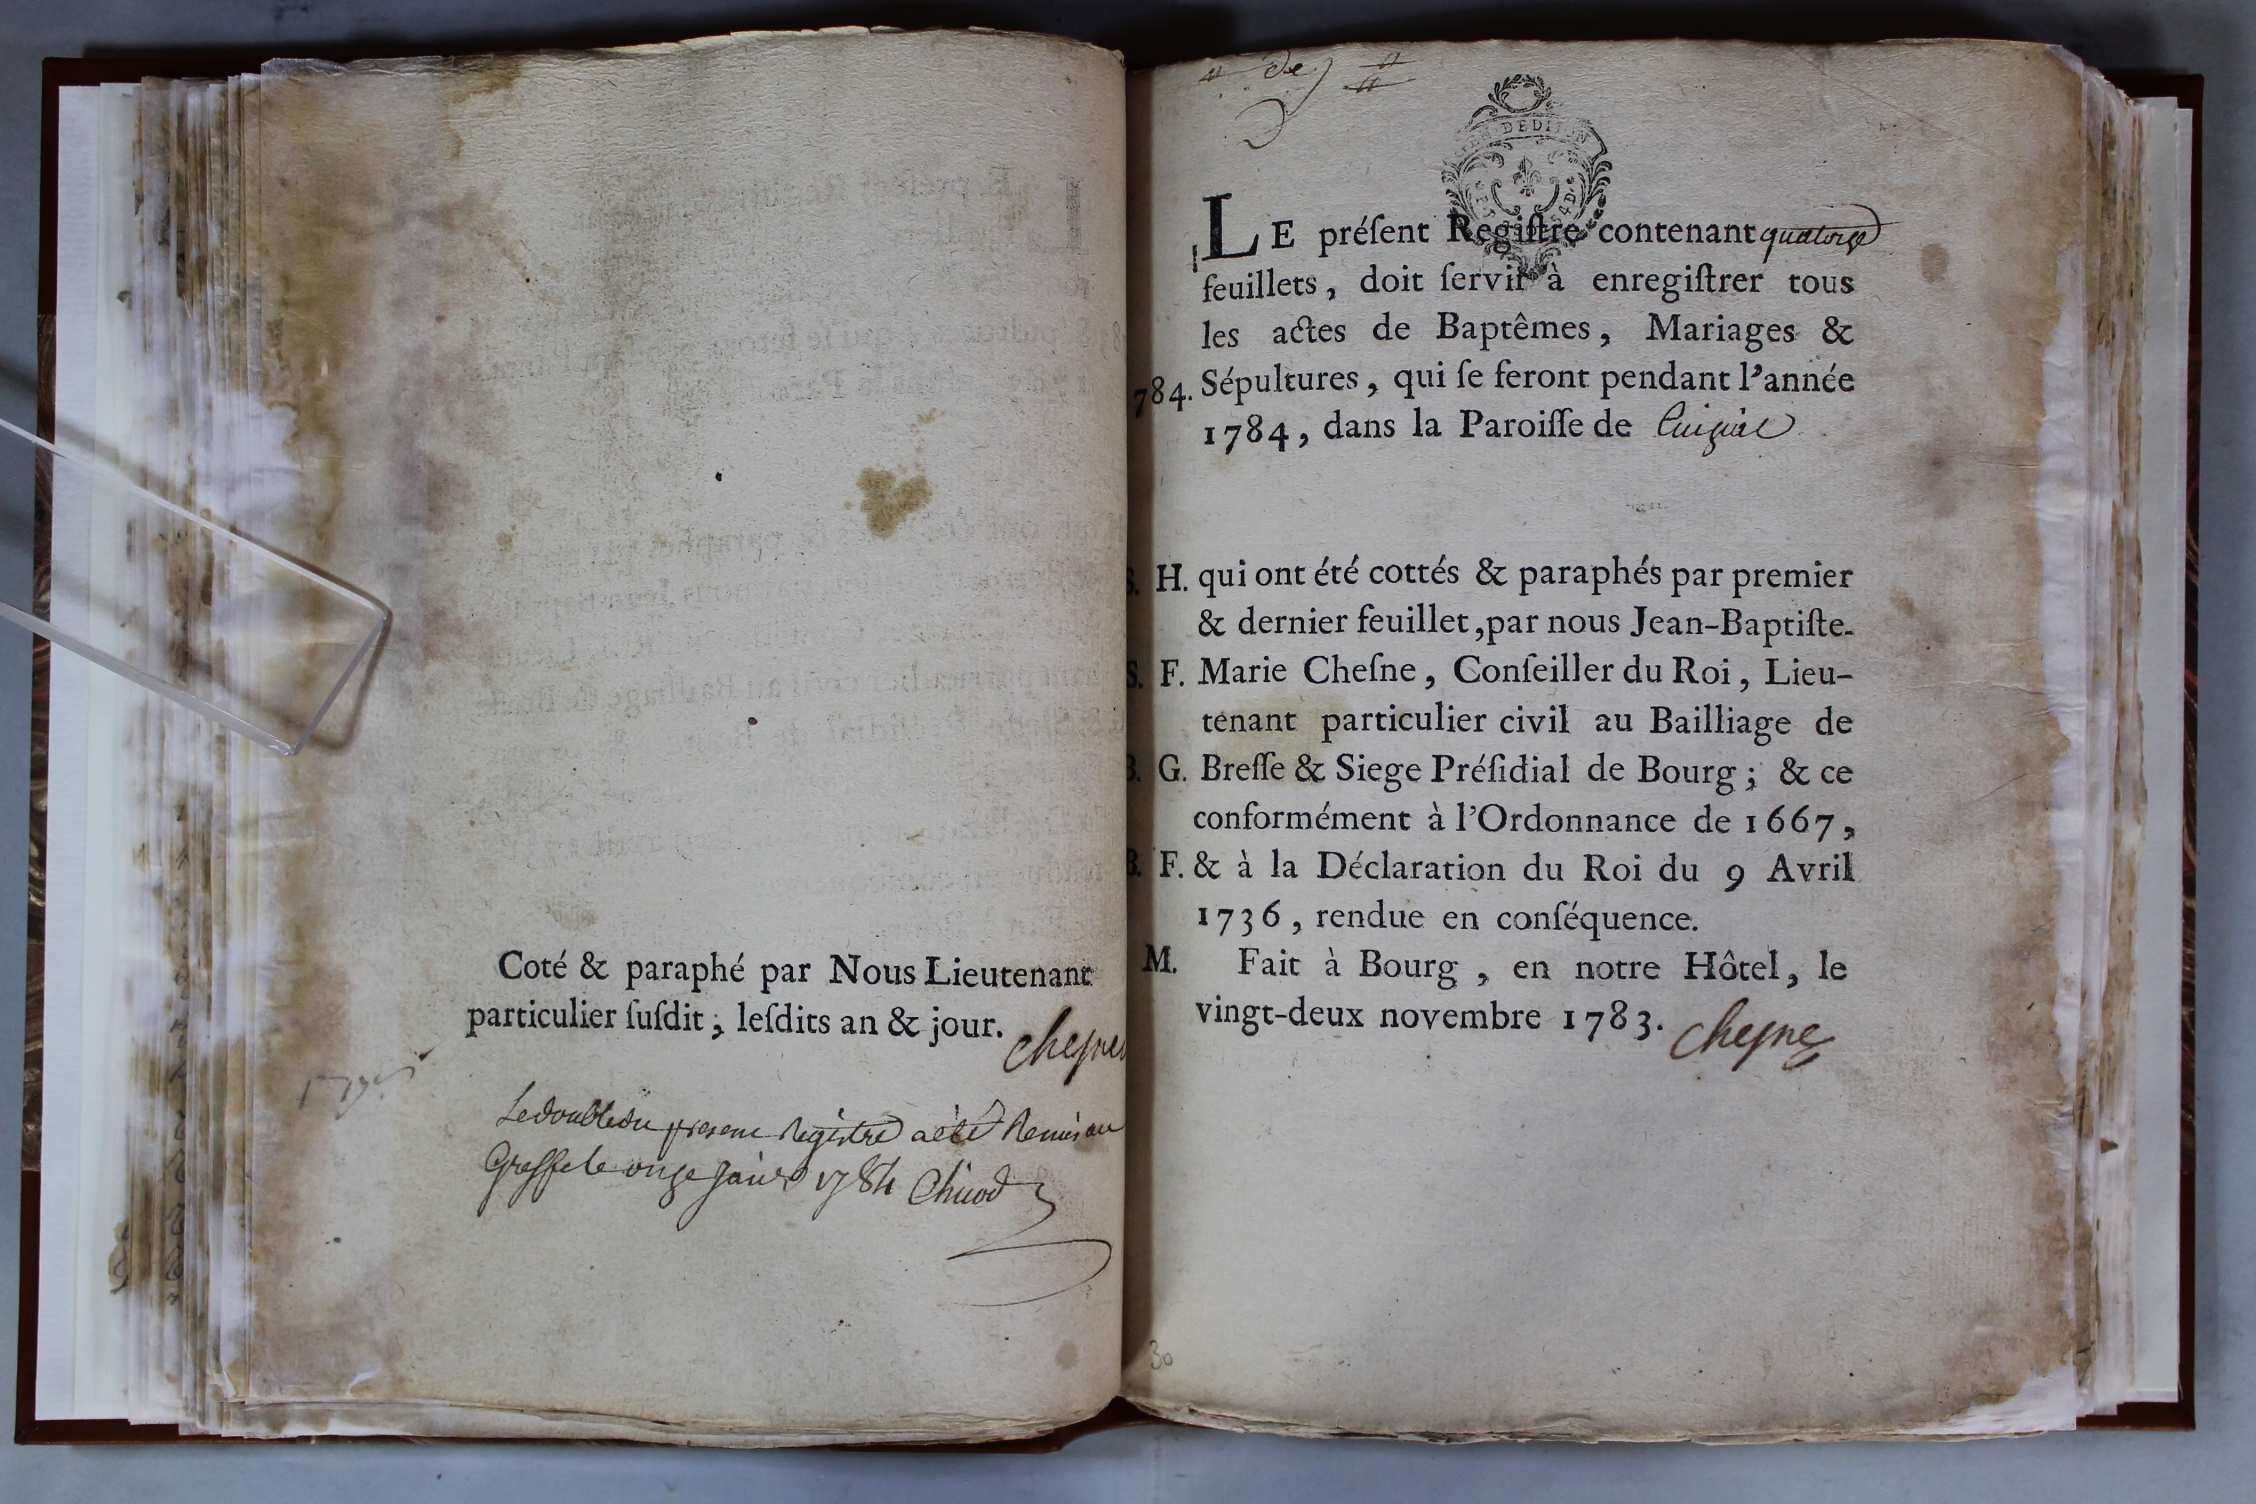 Coté & paraphé par Nous Lieutenant
particulier ſuſdit, leſdits an & jour. Cheſne
Le double du present Registre a été Remis au
Greffe le onze Janvr 1784
LE préſent Regiſtre contenant quatorze
feuillets, doit ſervir à enregiſtrer tous
les actes de Baptêmes, Mariages &
784. Sépultures, qui ſe feront pendant l'année
1784, dans la Paroiſſe de Cuiziat
S. H. qui ont été cottés & paraphés par premier
& dernier feuillet, par nous Jean-Baptiſte-
S. F. Marie Cheſne, Conſeiller du Roi, Lieu-
tenant particulier civil au Bailliage de
B. G. Breſſe & Siege Préſidial de Bourg; & ce
conformément à l'Ordonnance de 1667,
B. F. & à la Déclaration du Roi du 9 Avril
1736, rendue en conſéquence.
M. Fait à Bourg, en notre Hôtel, le
vingt-deux novembre 1783. Cheſne
30